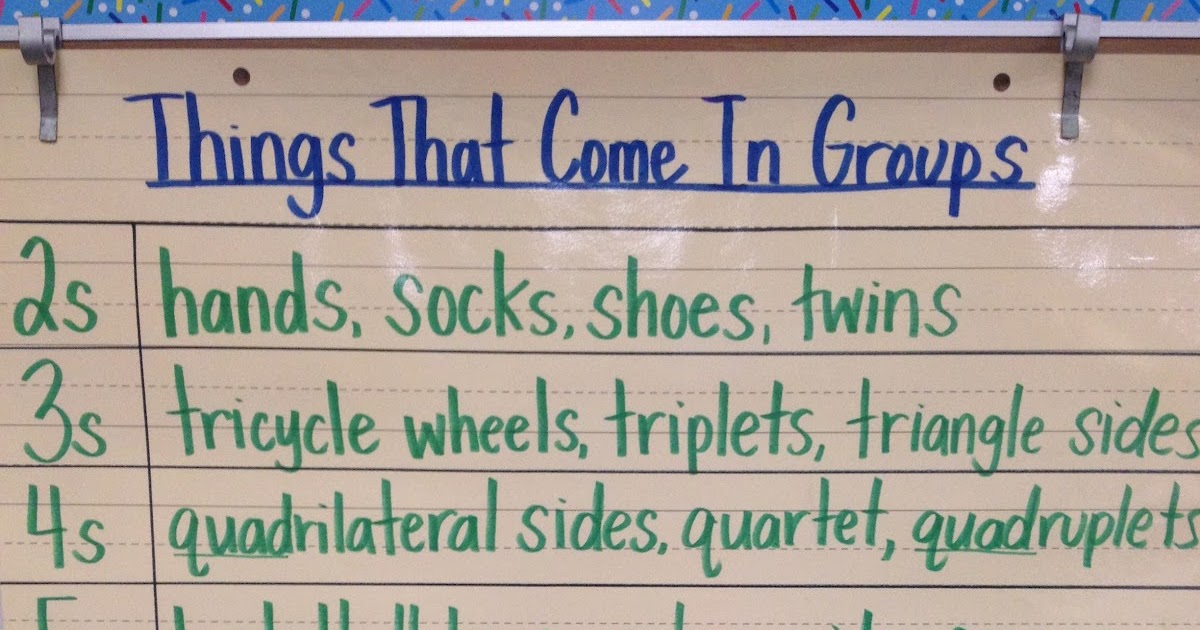 Things That Come In Groups
2s hands, socks, shoes, twins
3s tricycle wheels, triplets, triangle sides
4s quadrilateral sides, quartet, quadruplets